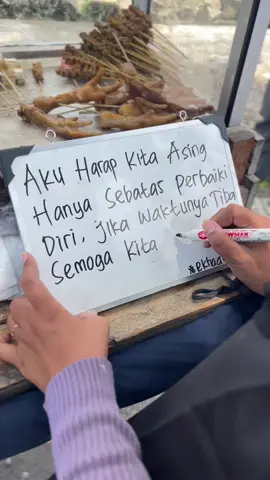 Aku Harap Kita Asing
Hanya Sebatar Perbaiki
Diri, Jika Waktunya Tiba
Semoga Kita